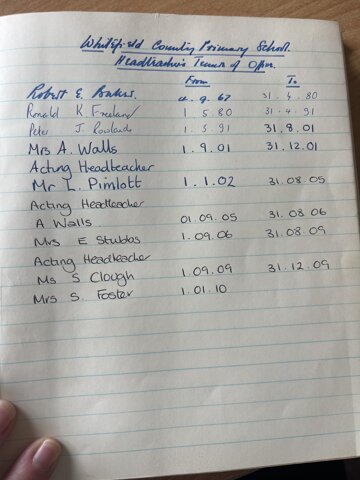 Whitefield County Primary School.
Headteacher's Terms of Office.
From To
Robert E. 9. 67 31. 4. 80
Ronald K. Freeland 1 5. 80 31. 4. 91
Peter J. Rowlands 1. 5. 91 31. 8. 01
Mrs A. Walls 1. 9. 01 31. 12. 01
Acting Headteacher
Mr L. Pimlott 1. 1. 02 31. 08. 05
Acting Headteacher
A Walls 01. 09. 05 31. 08 06
Mrs E Stubbs 1. 09. 06 31. 08. 09
Acting Headteacher
Ms S Clough 1. 09. 09 31. 12. 09
Mrs S. Foster 1. 01. 10